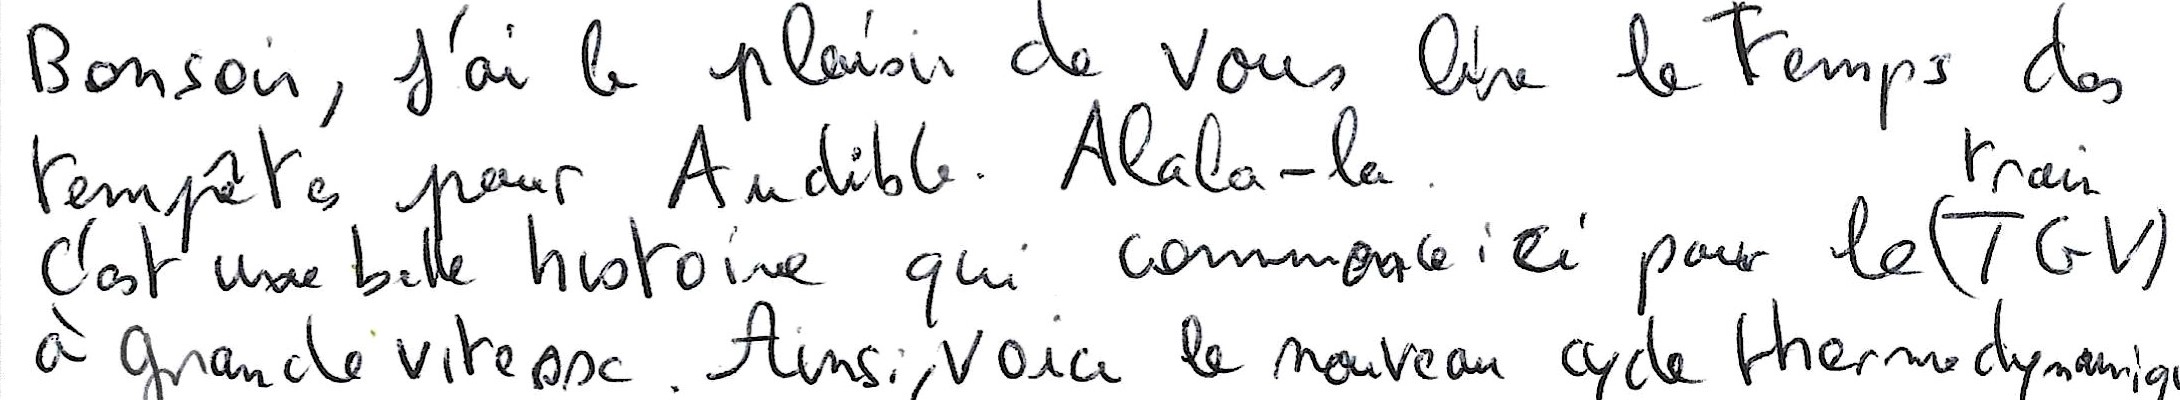 Bonsoir, j'ai le plaisir de vous lire le temps des
tempêtes pour Audible. Alala-la.
train
C'est une belle histoire qui commence ici pour le (TGV)
à grande vitesse. Ainsi, voici le nouveau cycle thermodynamiqu